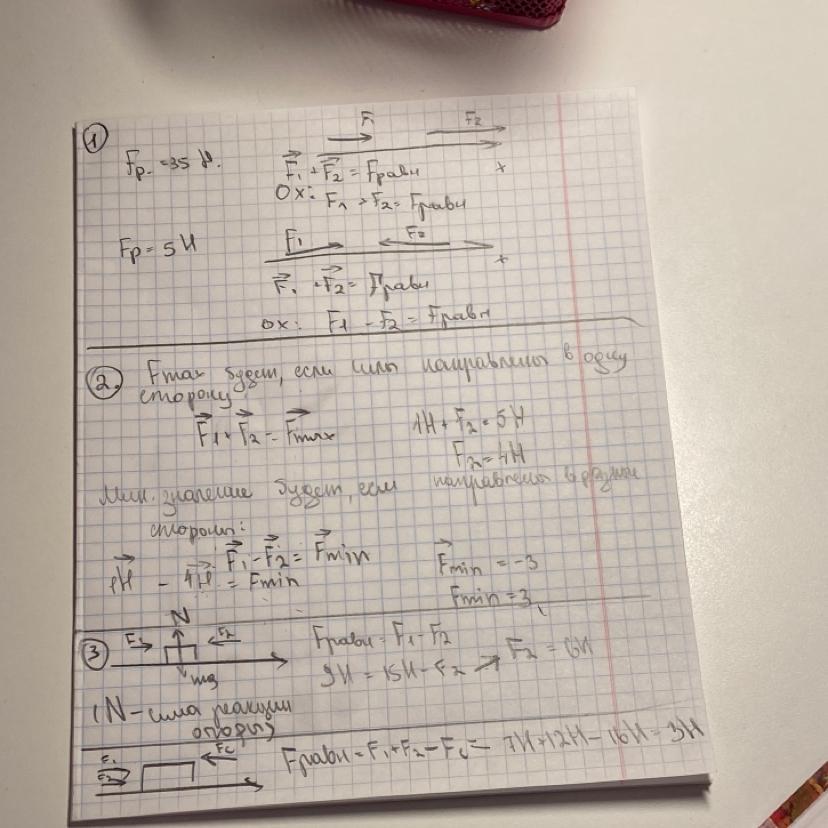 1
F F₂
Fр. = 35 Н.
F⃗₁ + F⃗₂ = Fравн
x
OX: F₁ + F₂ = Fравн
Fр = 5 Н
F₁ F₂
x
F⃗₁ + F⃗₂ = Fравн
ox: F₁ - F₂ = Fравн
2. Fmax будет, если силы направлены в одну
сторону
F⃗₁ + F⃗₂ = F⃗max
1Н + F₂ = 5Н
F₂ = 4Н
Мин. значение будет, если направлены в разные
стороны:
F⃗₁ - F⃗₂ = F⃗min
1Н - 4Н = Fmin
F⃗min = -3
Fmin = 3
3
N
F₁ F₂
mg
Fравн = F₁ - F₂
9Н = 15Н - F₂ → F₂ = 6Н
(N - сила реакции
опоры)
F₁ Fc
F₂
Fравн = F₁ + F₂ - Fc = 7Н + 12Н - 16Н = 3Н